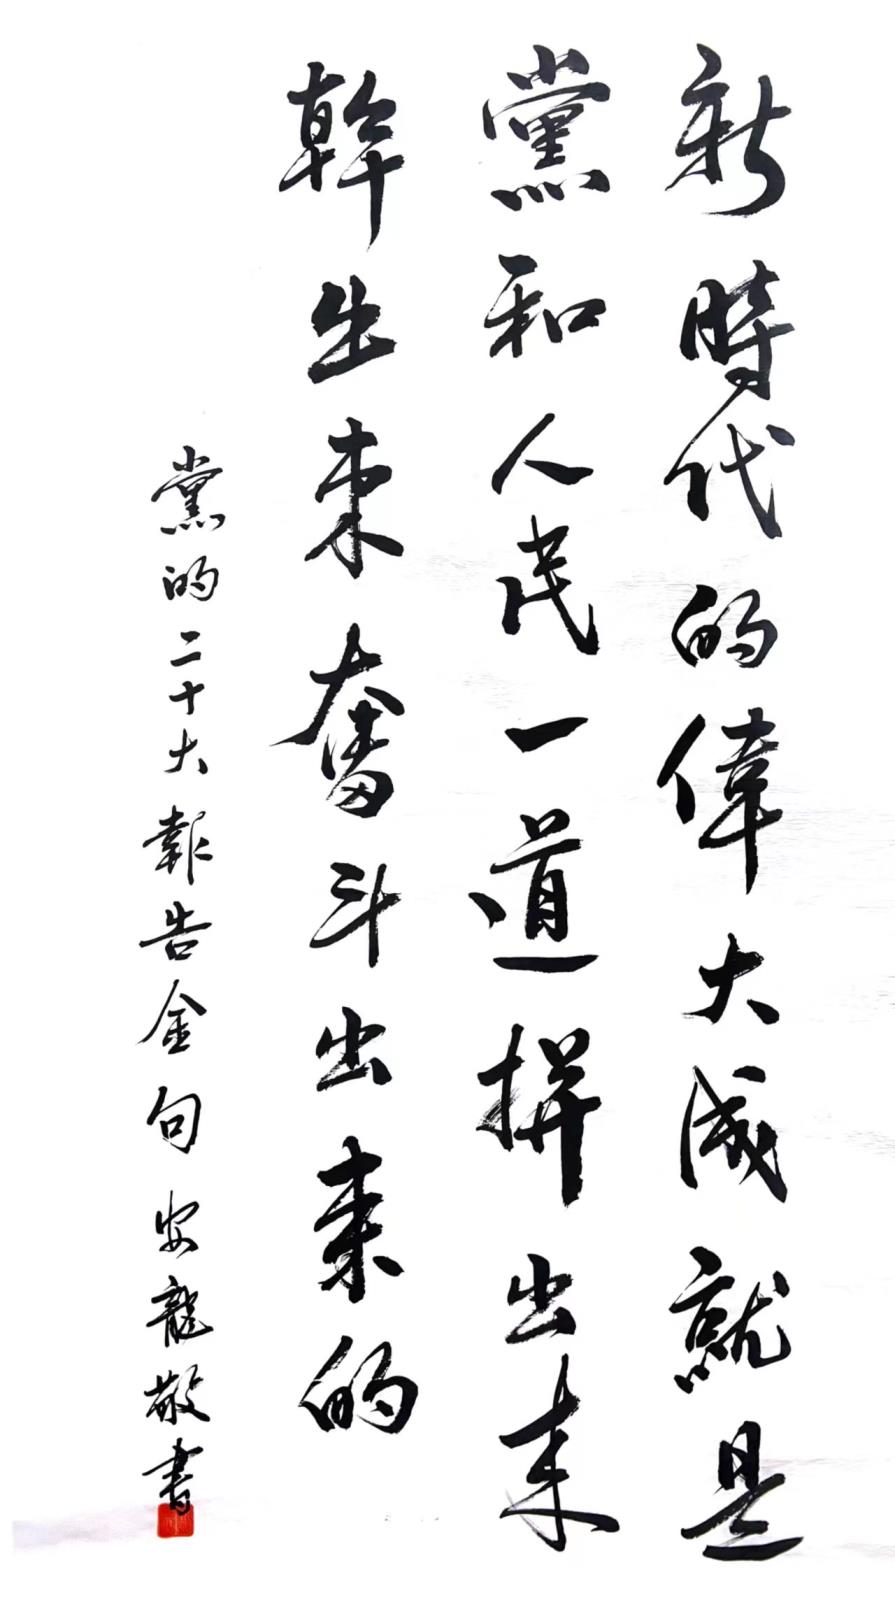 新時代的偉大成就是
黨和人民一道拼出来
幹出来奮斗出来的
黨的二十大報告金句 安龍敬書